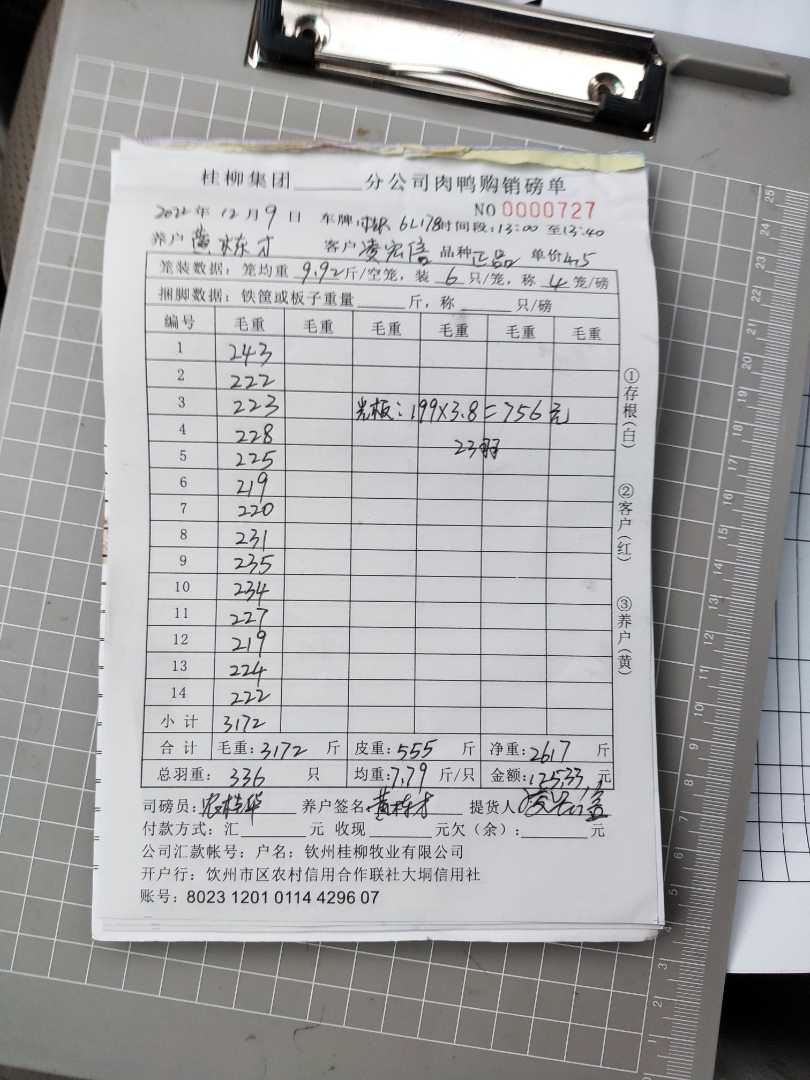 桂柳集团______分公司肉鸭购销磅单
NO 0000727
2022年12月9日 车牌: 6L178 时间段:13:00 至13:40
养户 黄栋才 客户 凌宏信 品种 正品 单价 4.75
笼装数据: 笼均重 9.92 斤/空笼, 装 6 只/笼, 称 4 笼/磅
捆脚数据: 铁筐或板子重量______斤, 称______只/磅
编号 毛重 毛重 毛重 毛重 毛重 毛重
1 243
2 222
3 223 光板: 199×3.8=756元
4 228
23羽
5 225
6 219
7 220
8 231
9 235
10 234
11 227
12 219
13 224
14 222
小计 3172
合计 毛重:3172 斤 皮重:555 斤 净重:2617 斤
总羽重: 336 只 均重:7.79 斤/只 金额:12533 元
司磅员: 养户签名:黄栋才 提货人 凌宏信
付款方式: 汇______元 收现______元欠(余):______元
公司汇款帐号: 户名: 钦州桂柳牧业有限公司
开户行: 钦州市区农村信用合作联社大垌信用社
账号: 8023 1201 0114 4296 07
①存根(白)
②客户(红)
③养户(黄)
25
24
23
22
21
20
19
18
17
16
15
14
13
12
11
10
9
8
7
6
5
4
3
2